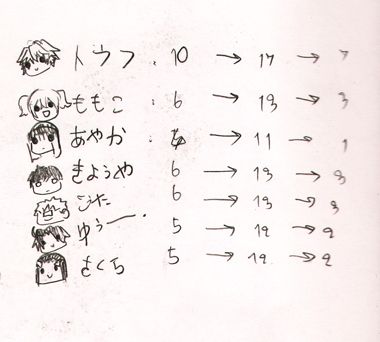 トウフ : 10 → 17 → 7
ももこ : 6 → 13 → 3
あやか : 4 → 11 → 1
きょうや 6 → 13 → 3
6 → 13 → 3
ゆぅー. 5 → 12 → 2
さくら 5 → 12 → 2